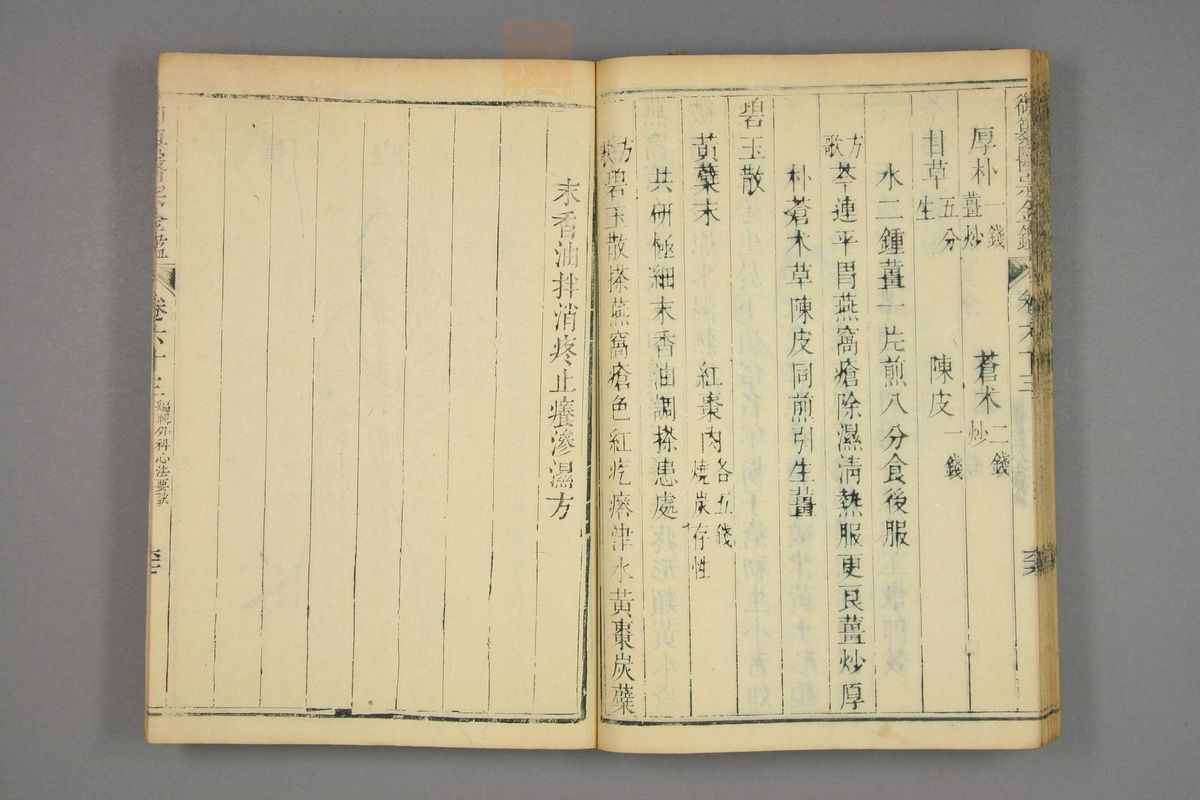 御纂醫宗金鑑 卷六十三
厚朴薑炒一錢 蒼术炒二錢
甘草生五分 陳皮一錢
水二鍾薑一片煎八分食後服
方歌 芩連平胃燕窩瘡除濕清熱服更良薑炒厚
朴蒼术草陳皮同煎引生薑
碧玉散
黃蘗末 紅棗肉燒炭存性各五錢
共研極細末香油調搽患處
方歌 碧玉散搽燕窩瘡色紅疙瘩津水黃棗炭蘗
末香油拌消疼止癢滲濕方
醫宗金鑑 卷六十三 編輯外科心法要訣